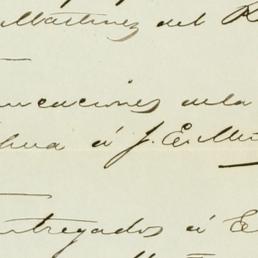 Martinez del R
unicaciones de la
hua á J. E. Mu
ntregados á E